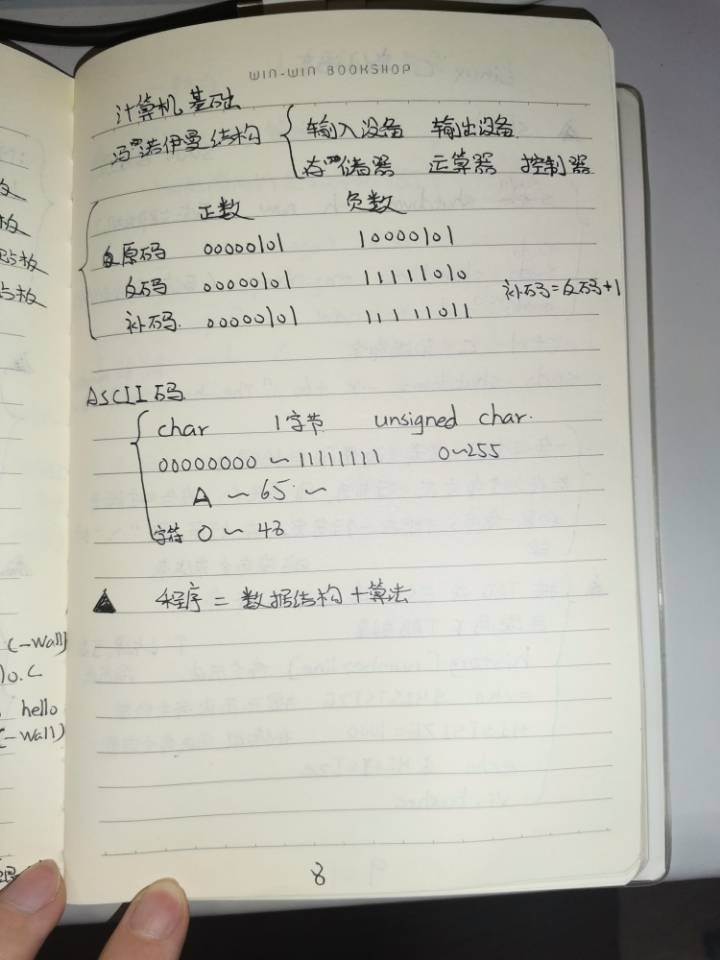 WIN-WIN BOOKSHOP
计算机基础
冯诺伊曼结构 { 输入设备 输出设备
存储器 运算器 控制器
正数 负数
原码 00000101 10000101
反码 00000101 11111010
补码 00000101 11111011 补码=反码+1
ASCII码
char 1字节 unsigned char.
00000000 ~ 11111111 0~255
A ~ 65 ~
字符 0 ~ 48
▲ 程序 = 数据结构 + 算法
8
(-Wall)
lo.c
hello
(-Wall)